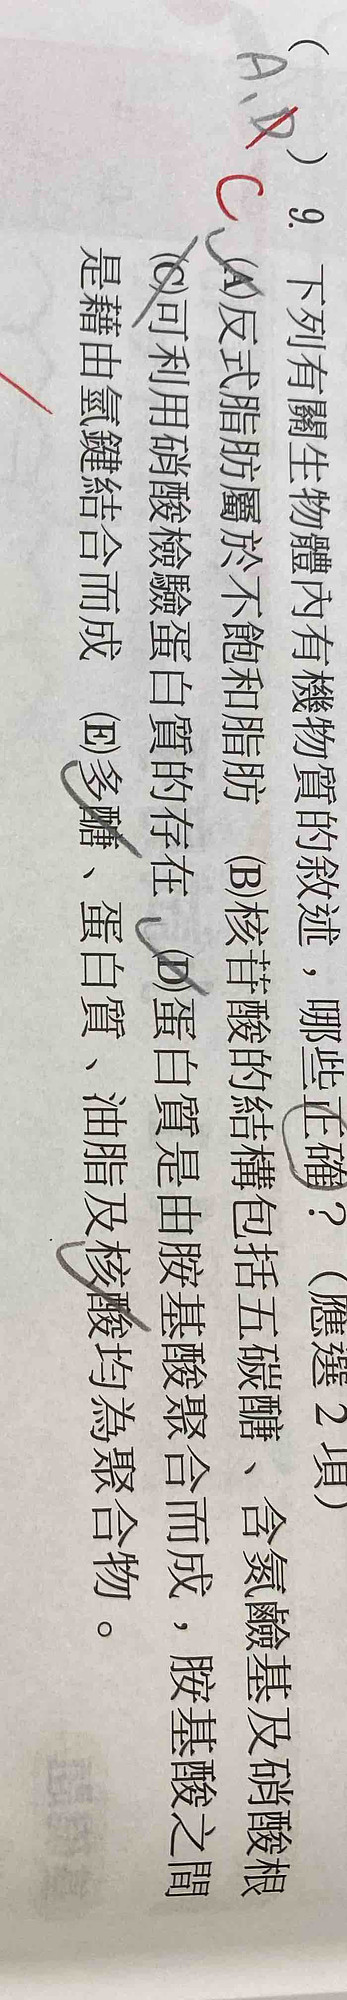 ( A、D ) C 9. 下列有關生物體內有機物質的敘述，哪些正確？（應選 2 項）
(A)反式脂肪屬於不飽和脂肪 (B)核苷酸的結構包括五碳醣、含氮鹼基及硝酸根
(C)可利用硝酸檢驗蛋白質的存在 (D)蛋白質是由胺基酸聚合而成，胺基酸之間
是藉由氫鍵結合而成 (E)多醣、蛋白質、油脂及核酸均為聚合物。